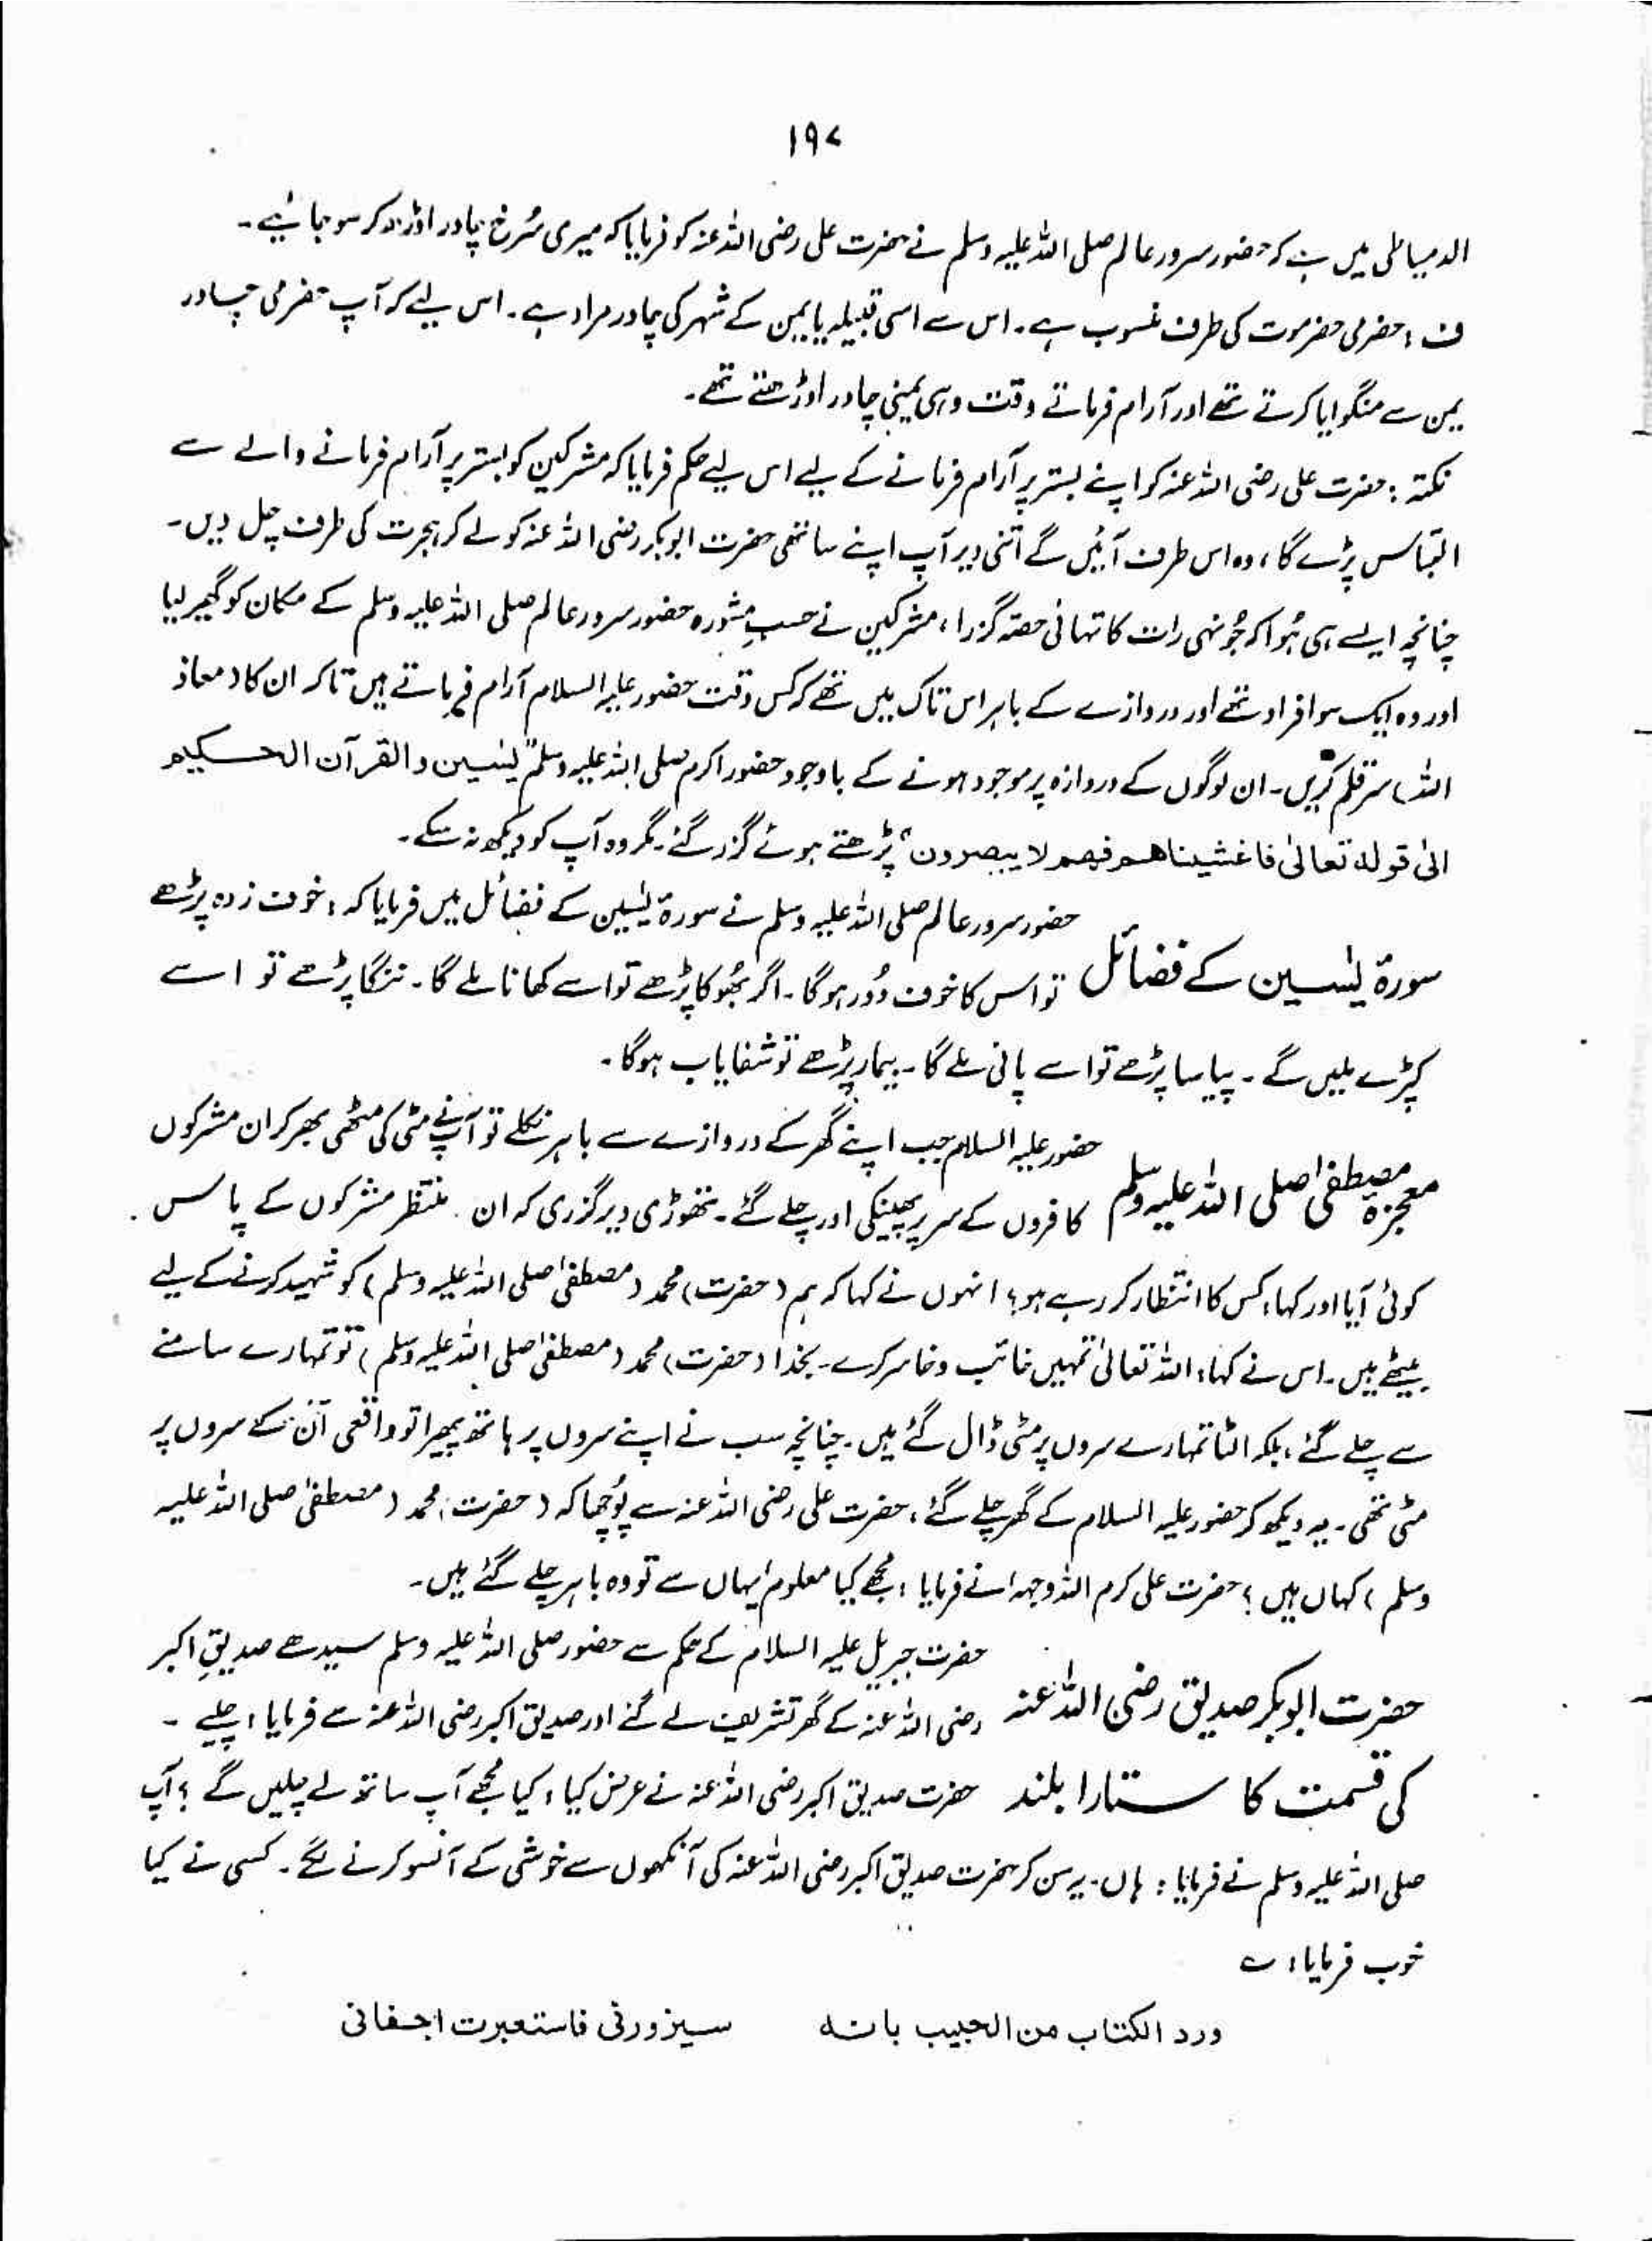 ۱۹۷
الدمیاطی میں ہے کہ حضور سرور عالم صلی اللہ علیہ وسلم نے حضرت علی رضی اللہ عنہ کو فرمایا کہ میری سُرخ چادر اوڑھ کر سو جائیے۔
ف : حضرمی حضرموت کی طرف منسوب ہے۔ اس سے اسی قبیلہ یا یمن کے شہر کی چادر مراد ہے۔ اس لیے کہ آپ حضرمی چادر
یمن سے منگوایا کرتے تھے اور آرام فرماتے وقت وہی یمینی چادر اوڑھتے تھے۔
نکتہ : حضرت علی رضی اللہ عنہ کو اپنے بستر پر آرام فرمانے کے لیے اس لیے حکم فرمایا کہ مشرکین کو بستر پر آرام فرمانے والے سے
التباس پڑے گا، وہ اس طرف آئیں گے اتنی دیر آپ اپنے ساتھی حضرت ابوبکر رضی اللہ عنہ کو لے کر ہجرت کی طرف چل دیں۔
چنانچہ ایسے ہی ہُوا کہ جُونہی رات کا تہائی حصّہ گزرا، مشرکین نے حسبِ مشورہ حضور سرور عالم صلی اللہ علیہ وسلم کے مکان کو گھیر لیا
اور وہ ایک سو افراد تھے اور دروازے کے باہر اس تاک میں تھے کہ کس وقت حضور علیہ السلام آرام فرماتے ہیں تاکہ ان کا (معاذ
اللہ) سر قلم کریں۔ ان لوگوں کے دروازہ پر موجود ہونے کے باوجود حضور اکرم صلی اللہ علیہ وسلم "یٰسین والقرآن الحکیم
الیٰ قولہ تعالیٰ فاغشیناھم فھم لا یبصرون" پڑھتے ہوئے گزر گئے۔ مگر وہ آپ کو دیکھ نہ سکے۔
سورۃ یٰسین کے فضائل
حضور سرور عالم صلی اللہ علیہ وسلم نے سورۃ یٰسین کے فضائل میں فرمایا کہ : خوف زدہ پڑھے
تو اس کا خوف دُور ہوگا۔ اگر بھُوکا پڑھے تو اسے کھانا ملے گا۔ ننگا پڑھے تو اسے
کپڑے ملیں گے۔ پیاسا پڑھے تو اسے پانی ملے گا۔ بیمار پڑھے تو شفایاب ہوگا۔
معجزہ مصطفیٰ صلی اللہ علیہ وسلم
حضور علیہ السلام جب اپنے گھر کے دروازے سے باہر نکلے تو آپ نے مٹی کی مٹھی بھر کر ان مشرکوں
کافروں کے سر پر پھینکی اور چلے گئے۔ تھوڑی دیر گزری کہ ان منتظر مشرکوں کے پاس
کوئی آیا اور کہا، کس کا انتظار کر رہے ہو؟ انہوں نے کہا کہ ہم (حضرت) محمد (مصطفیٰ صلی اللہ علیہ وسلم) کو شہید کرنے کے لیے
بیٹھے ہیں۔ اس نے کہا، اللہ تعالیٰ تمہیں خائب و خاسر کرے۔ بخدا (حضرت) محمد (مصطفیٰ صلی اللہ علیہ وسلم) تو تمہارے سامنے
سے چلے گئے، بلکہ الٹا تمہارے سروں پر مٹی ڈال گئے ہیں۔ چنانچہ سب نے اپنے سروں پر ہاتھ پھیرا تو واقعی اُن کے سروں پر
مٹی تھی۔ یہ دیکھ کر حضور علیہ السلام کے گھر چلے گئے، حضرت علی رضی اللہ عنہ سے پُوچھا کہ (حضرت) محمد (مصطفیٰ صلی اللہ علیہ
وسلم) کہاں ہیں؟ حضرت علی کرم اللہ وجہہ نے فرمایا : مجھے کیا معلوم! یہاں سے تو وہ باہر چلے گئے ہیں۔
حضرت ابوبکر صدیق رضی اللہ عنہ
کی قسمت کا ستارا بلند
حضرت جبریل علیہ السلام کے حکم سے حضور صلی اللہ علیہ وسلم سیدھے صدیقِ اکبر
رضی اللہ عنہ کے گھر تشریف لے گئے اور صدیق اکبر رضی اللہ عنہ سے فرمایا، چلیے۔
حضرت صدیق اکبر رضی اللہ عنہ نے عرض کیا، کیا مجھے آپ ساتھ لے چلیں گے؟ آپ
صلی اللہ علیہ وسلم نے فرمایا : ہاں۔ یہ سن کر حضرت صدیق اکبر رضی اللہ عنہ کی آنکھوں سے خوشی کے آنسو کرنے لگے۔ کسی نے کیا
خوب فرمایا، ؎
ورد الکتاب من الحبیب بانہ سیزورنی فاستعبرت اجفانی